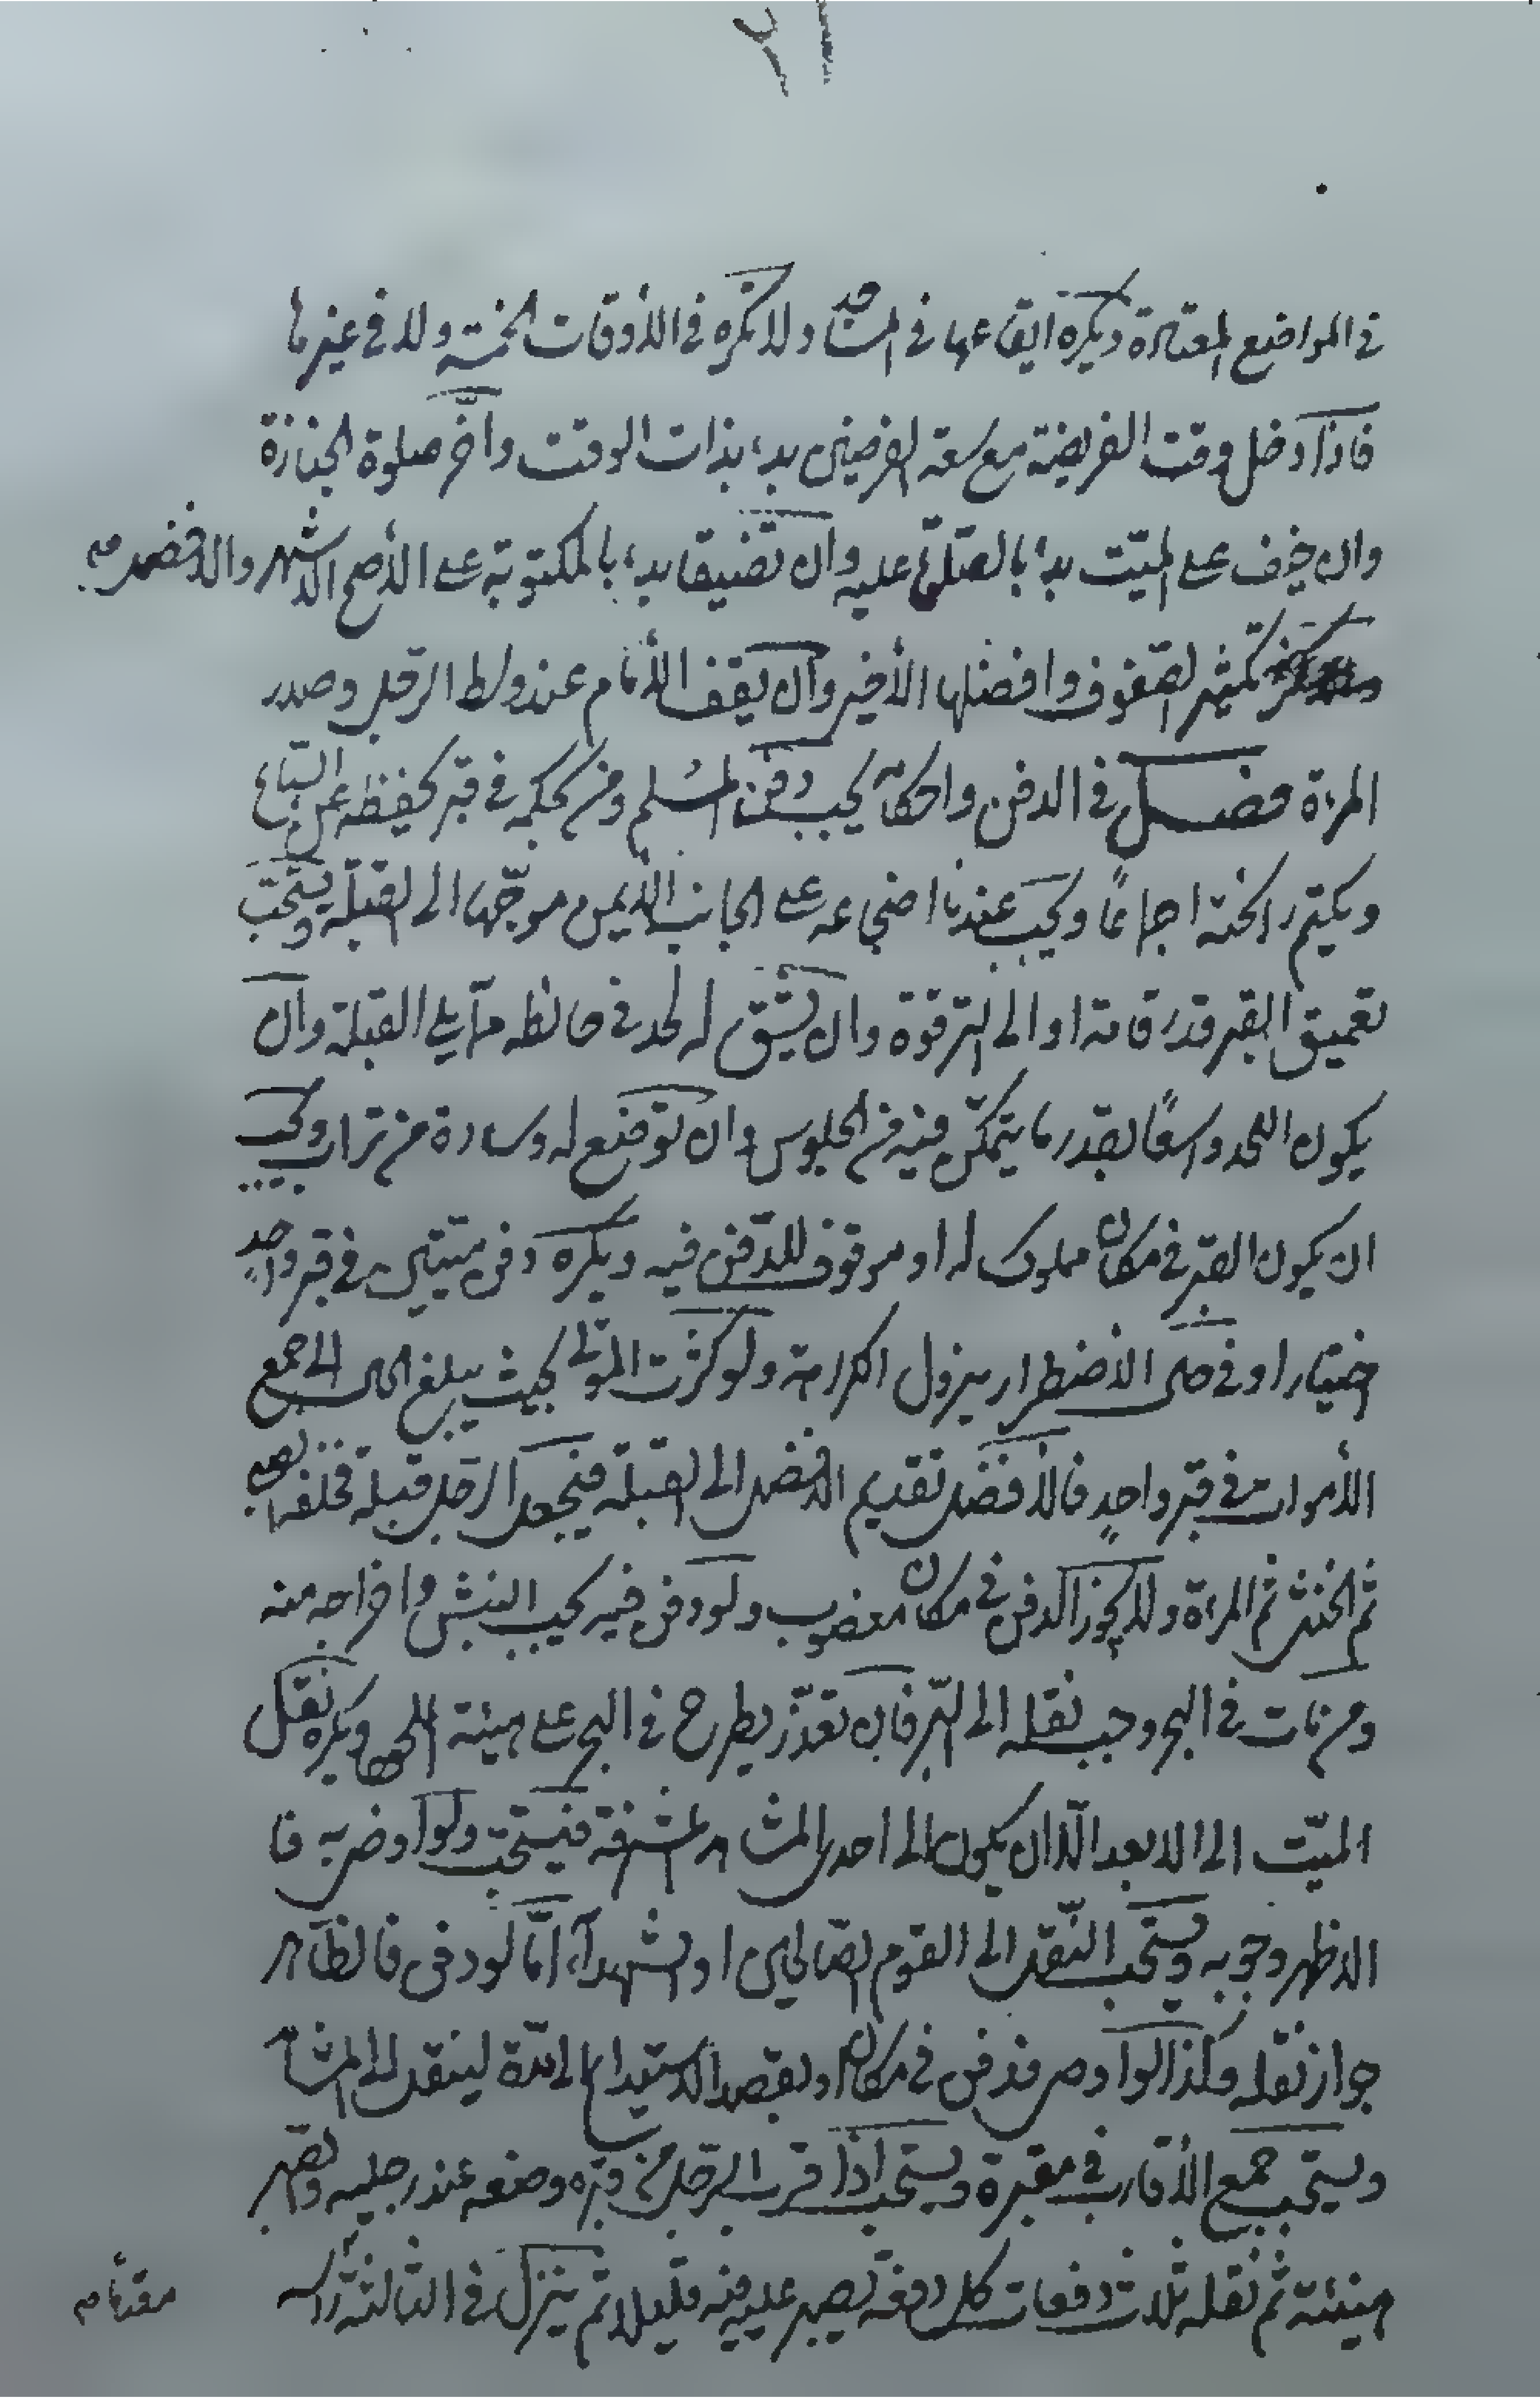 ٢١
في المواضع المعتادة ويكره ايقاعها في المساجد ولا تكره في الأوقات الخمسة ولا في غيرها
فاذا دخل وقت الفريضة مع سعة الفرضين بدء بذات الوقت وأخّر صلوة الجنازة
وان خيف على الميّت بدء بالصلوة عليه وان تضيقا بدء بالمكتوبة على الأصح الاشهر والافضل
تكثير الصّفوف وافضلها الأخير وان يقف الأمام عند وسط الرجل وصدر
المرءة فصل في الدفن واحكامه يجب دفن المسلم ومن بحكمه في قبر يحفظه عن السّباع
ويكتم رائحته اجماعًا ويجب عندنا اضجاعه على الجانب الأيمن موجّها الى القبلة ويستحبّ
تعميق القبر قدر قامة او الى الترقوة وان يشقّ له لحد في حائطه ممّا يلي القبلة وان
يكون اللحد واسعًا بقدر ما يتمكّن فيه من الجلوس وان توضع له وسادة من تراب ويجب
ان يكون القبر في مكان مملوك له او موقوف للدّفن فيه ويكره دفن ميّتين في قبر واحدٍ
اختيارا وفي حال الأضطرار يزول الكراهة ولو كثرت الموتى بحيث يبلغ الحال الى جمع
الأموات في قبر واحدٍ فالأفضل تقديم الافضل الى القبلة فيجعل الرّجل قبلة فخلفه الصبي
ثم الخنثى ثم المرءة ولا يجوز الدفن في مكان مغصوب ولو دفن فيه يجب النبش واخراجه منه
ومن مات في البحر وجب نقله الى البّر فان تعذّر يطرح في البحر على هيئة اللحد ويكره نقل
الميّت الى الابعد الّا ان يكون الى احدى المشاهد المشرفة فيستحبّ ولو اوصى به فا
الاظهر وجوبه ويستحب النّقل الى القوم الصّالحين او الشهدآء امّا لو دفن فالظاهر
جواز نقله وكذا لو اوصى فدفن في مكان او بقصد الاستيداع الى مدّة لينقل الى المشاهد
ويستحب جمع الأقارب في مقبرة ويستحب اذا قرب الرّجل من قبره وضعه عند رجليه والصّبر
هنيئة ثم نقله ثلاث دفعات كل دفعة يصبر عليه فيه قليلا ثم ينزل في الثالثة رأسه
مقدّما